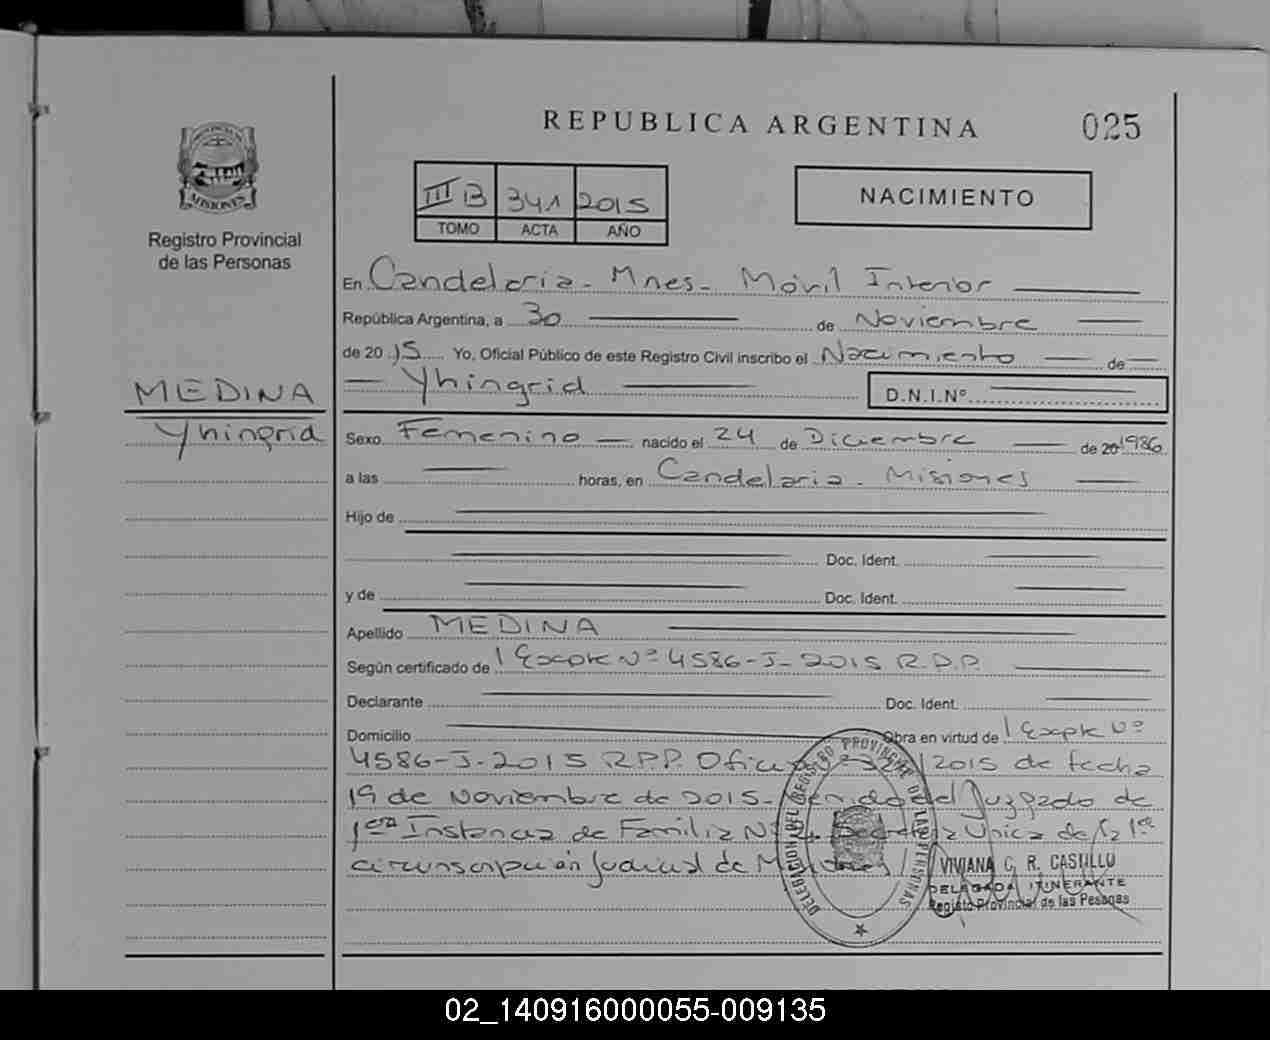 REPUBLICA ARGENTINA
025
MISIONES
Registro Provincial
de las Personas
III B 341 2015
TOMO ACTA AÑO
NACIMIENTO
En Candelaria - Mnes - Móvil Interior
República Argentina, a 30 de Noviembre
de 2015 Yo, Oficial Público de este Registro Civil inscribo el Nacimiento de
Yhingrid D.N.I.Nº
MEDINA
Yhingrid
Sexo Femenino nacido el 24 de Diciembre de 20 1986
a las horas, en Candelaria - Misiones
Hijo de
Doc. Ident.
y de Doc. Ident.
Apellido MEDINA
Según certificado de Expte Nº 4586-J-2015 R.P.P.
Declarante Doc. Ident.
Domicilio Obra en virtud de Expte Nº
4586-J-2015 R.P.P. Oficio /2015 de fecha
19 de Noviembre de 2015 - del Juzgado de
1era Instancia de Familia Nº Secretaria Unica de la 1era
circunscripción Judicial de Misiones
DELEGACION DEL REGISTRO PROVINCIAL DE LAS PERSONAS
VIVIANA C. R. CASTILLO
DELEGADA ITINERANTE
Registro Provincial de las Pesonas
02_140916000055-009135